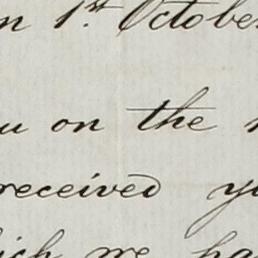 n 1st October
u on the
received yo
hich we ha